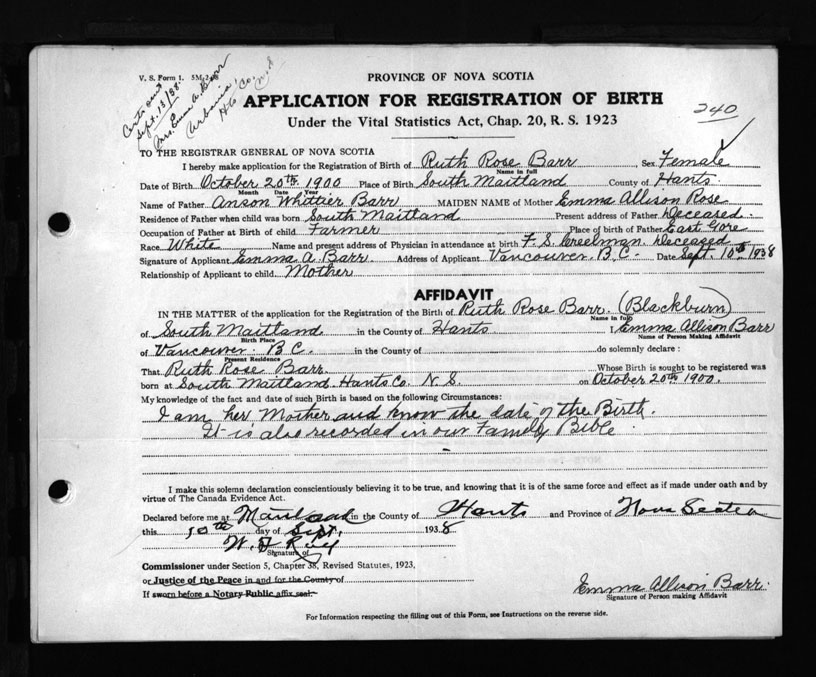 V. S. Form 1. 5M-2-
Certs out
Sept. 13/38.
Mrs. Emma A. Barr
Urbania,
Hts Co. N.S.
PROVINCE OF NOVA SCOTIA
APPLICATION FOR REGISTRATION OF BIRTH
240
Under the Vital Statistics Act, Chap. 20, R. S. 1923
TO THE REGISTRAR GENERAL OF NOVA SCOTIA
I hereby make application for the Registration of Birth of Ruth Rose Barr Sex Female
Name in full
Date of Birth October 20th 1900 Place of Birth South Maitland County of Hants
Month Date Year
Name of Father Anson Whittier Barr MAIDEN NAME of Mother Emma Allison Rose
Residence of Father when child was born South Maitland Present address of Father Deceased.
Occupation of Father at Birth of child Farmer Place of birth of Father East Gore
Race White Name and present address of Physician in attendance at birth F. S. Creelman Deceased
Signature of Applicant Emma A. Barr Address of Applicant Vancouver B.C. Date Sept. 10th 1938
Relationship of Applicant to child Mother
AFFIDAVIT
IN THE MATTER of the application for the Registration of the Birth of Ruth Rose Barr (Blackburn)
Name in full
of South Maitland in the County of Hants I, Emma Allison Barr
Birth Place Name of Person Making Affidavit
of Vancouver B C. in the County of do solemnly declare :
Present Residence
That Ruth Rose Barr Whose Birth is sought to be registered was
born at South Maitland Hants Co. N. S. on October 20th 1900.
My knowledge of the fact and date of such Birth is based on the following Circumstances:
I am her Mother and know the date of the Birth.
It is also recorded in our Family Bible.
I make this solemn declaration conscientiously believing it to be true, and knowing that it is of the same force and effect as if made under oath and by
virtue of The Canada Evidence Act.
Declared before me at Maitland in the County of Hants and Province of Nova Scotia
this 10th day of Sept. 1938
W.
Signature of
Commissioner under Section 5, Chapter 38, Revised Statutes, 1923,
or Justice of the Peace in and for the County of
If sworn before a Notary Public affix seal.
Emma Allison Barr.
Signature of Person making Affidavit
For Information respecting the filling out of this Form, see Instructions on the reverse side.